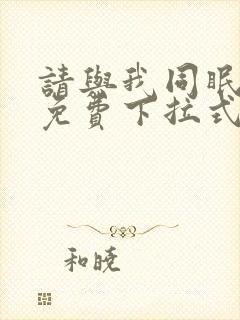 請與我同眠
免費下拉式
和曉